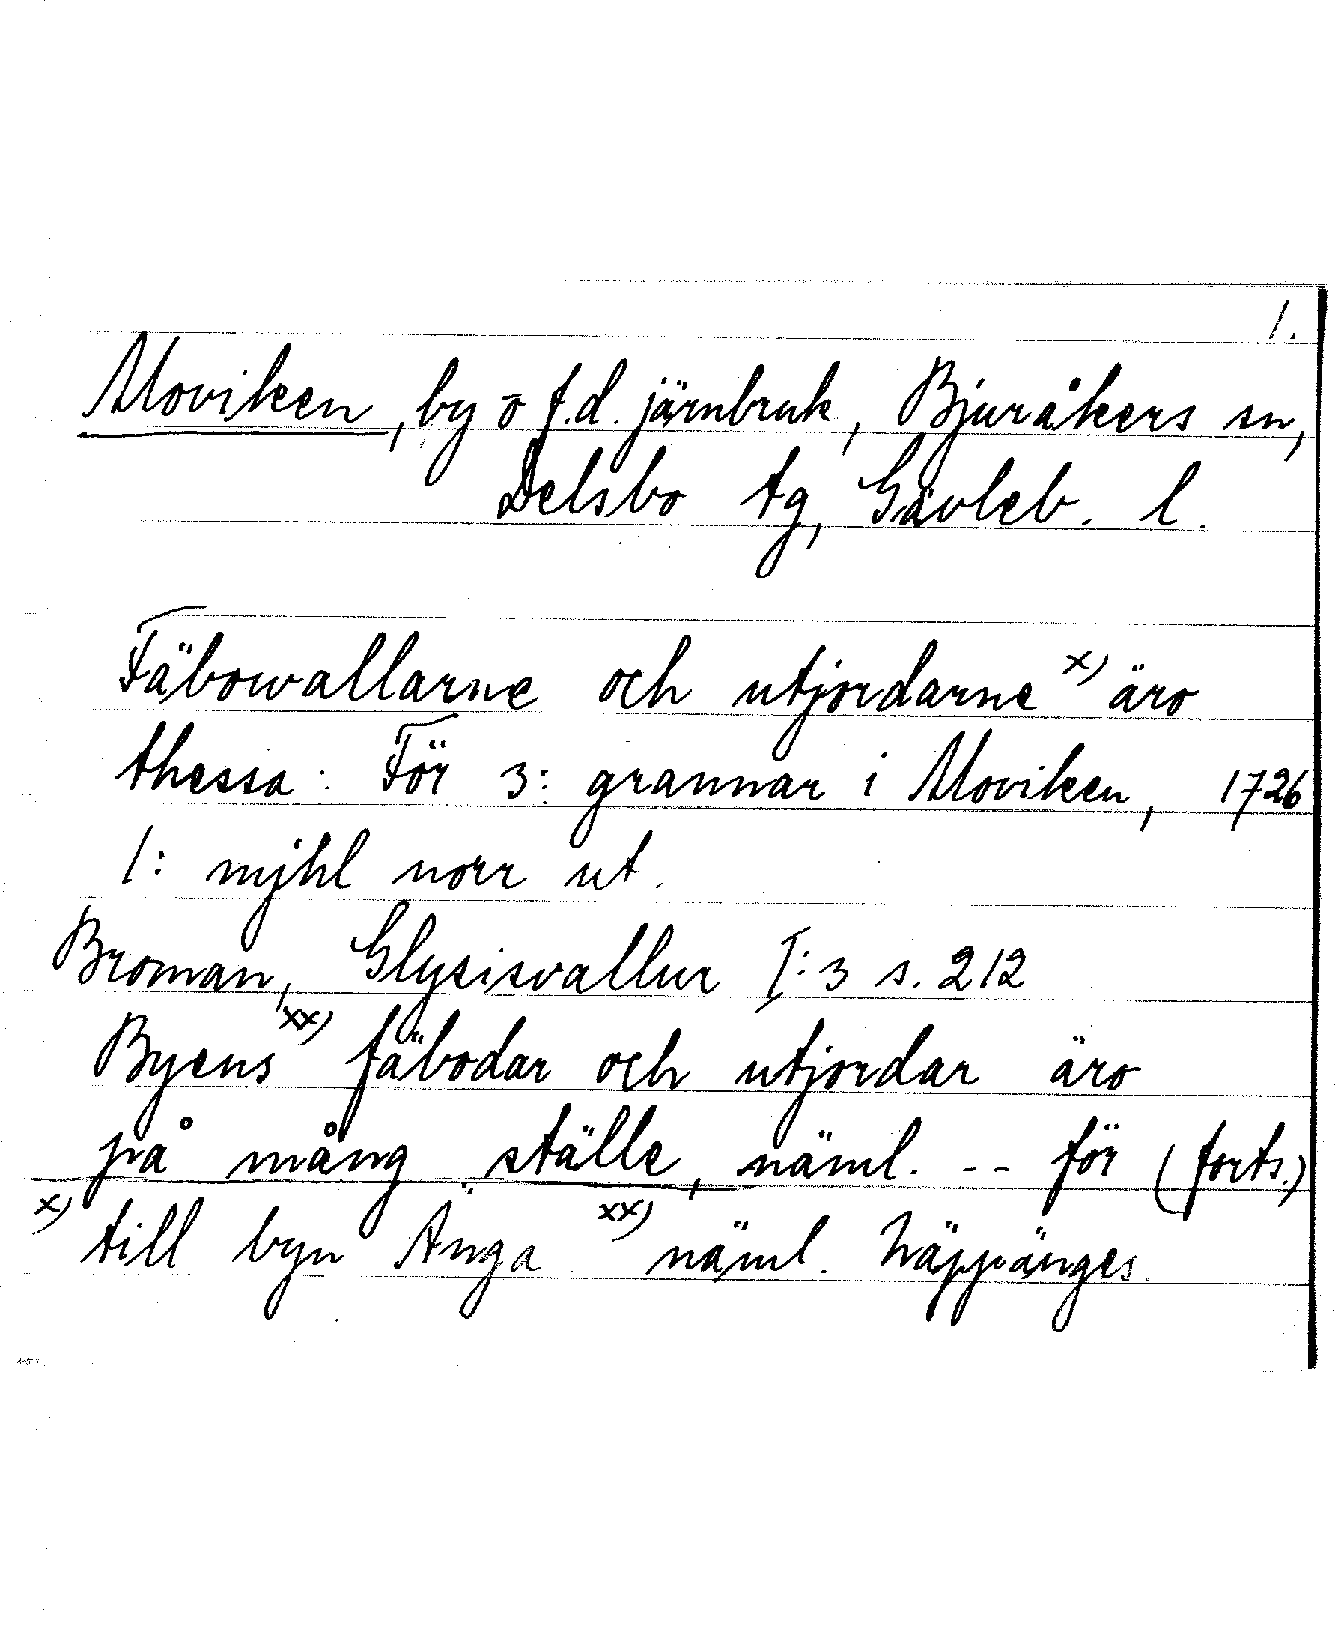 1.
Moviken, by o f.d. järnbruk, Bjuråkers sn,
Delsbo tg, Gävleb. l.
Fäbowallarne och utjordarne x) äro
thessa: För 3: grannar i Moviken, 1726
1: mjhl norr ut.
Broman, Glysisvallur I:3 s. 212
Byens xx) fäbodar och utjordar äro
på mång ställe, näml. -- för (forts.)
x) till byn Änga xx) näml. Näppänges.